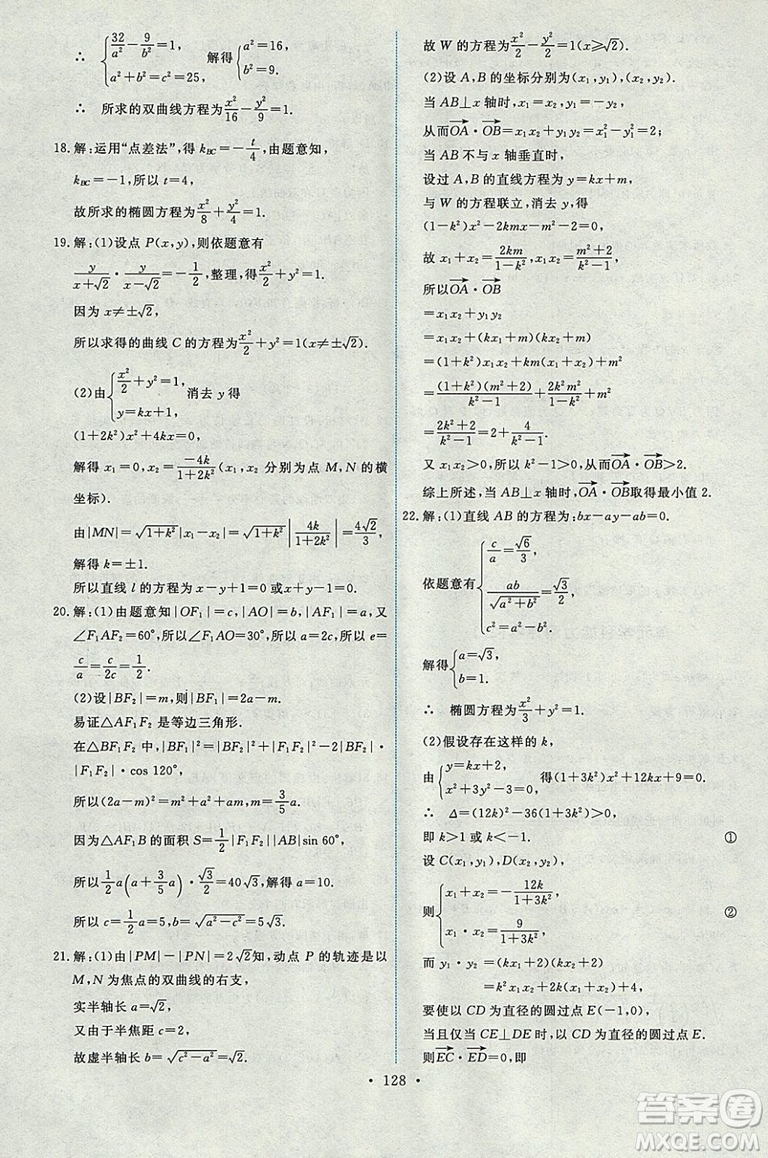 ∴ { 32/a² − 9/b² = 1, a² + b² = c² = 25, 解得 { a² = 16, b² = 9.
∴ 所求的双曲线方程为 x²/16 − y²/9 = 1.
18. 解:运用“点差法”,得 k_BC = −t/4,由题意知,
k_BC = −1,所以 t = 4,
故所求的椭圆方程为 x²/8 + y²/4 = 1.
19. 解:(1)设点 P(x,y),则依题意有
y/(x+√2) · y/(x−√2) = −1/2,整理,得 x²/2 + y² = 1.
因为 x ≠ ±√2,
所以求得的曲线 C 的方程为 x²/2 + y² = 1(x ≠ ±√2).
(2)由 { x²/2 + y² = 1, y = kx + 1, 消去 y 得
(1+2k²)x² + 4kx = 0.
解得 x₁ = 0, x₂ = −4k/(1+2k²) (x₁, x₂ 分别为点 M,N 的横
坐标).
由|MN| = √(1+k²)|x₁−x₂| = √(1+k²)|4k/(1+2k²)| = 4√2/3,
解得 k = ±1.
所以直线 l 的方程为 x−y+1=0 或 x+y−1=0.
20. 解:(1)由题意知|OF₁|=c,|AO|=b,|AF₁|=a,又
∠F₁AF₂=60°,所以∠F₁AO=30°,所以 a=2c,所以 e=
c/a = c/2c = 1/2.
(2)设|BF₂|=m,则|BF₁|=2a−m.
易证△AF₁F₂ 是等边三角形.
在△BF₁F₂ 中,|BF₁|²=|BF₂|²+|F₁F₂|²−2|BF₂|·
|F₁F₂|·cos 120°,
所以(2a−m)²=m²+a²+am,m = 3/5 a.
因为△AF₁B 的面积 S = 1/2|F₁F₂||AB|sin 60°,
所以 1/2 a(a + 3/5 a)·√3/2 = 40√3,解得 a=10.
所以 c = 1/2 a = 5,b = √(a²−c²) = 5√3.
21. 解:(1)由|PM|−|PN|=2√2知,动点 P 的轨迹是以
M,N 为焦点的双曲线的右支,
实半轴长 a=√2,
又由于半焦距 c=2,
故虚半轴长 b = √(c²−a²) = √2.
故 W 的方程为 x²/2 − y²/2 = 1(x≥√2).
(2)设 A,B 的坐标分别为(x₁,y₁),(x₂,y₂).
当 AB⊥x 轴时,x₁=x₂,y₁=−y₂,
从而OA→·OB→=x₁x₂+y₁y₂=x₁²−y₁²=2;
当 AB 不与 x 轴垂直时,
设过 A,B 的直线方程为 y=kx+m,
与 W 的方程联立,消去 y,得
(1−k²)x²−2kmx−m²−2=0,
故 x₁+x₂ = 2km/(1−k²),x₁x₂ = (m²+2)/(k²−1),
所以OA→·OB→
=x₁x₂+y₁y₂
=x₁x₂+(kx₁+m)(kx₂+m)
=(1+k²)x₁x₂+km(x₁+x₂)+m²
= (1+k²)(m²+2)/(k²−1) + 2k²m²/(1−k²) + m²
= (2k²+2)/(k²−1) = 2 + 4/(k²−1).
又 x₁x₂>0,所以 k²−1>0,从而OA→·OB→>2.
综上所述,当 AB⊥x 轴时,OA→·OB→取得最小值 2.
22. 解:(1)直线 AB 的方程为:bx−ay−ab=0.
依题意有 { c/a = √6/3, ab/√(a²+b²) = √3/2, c² = a²−b²,
解得 { a=√3, b=1.
∴ 椭圆方程为 x²/3 + y² = 1.
(2)假设存在这样的 k,
由 { y=kx+2, x²+3y²−3=0, 得(1+3k²)x²+12kx+9=0.
∴ Δ=(12k)²−36(1+3k²)>0,
即 k>1 或 k<−1. ①
设 C(x₁,y₁),D(x₂,y₂),
则 { x₁+x₂ = −12k/(1+3k²), x₁·x₂ = 9/(1+3k²), ②
而 y₁·y₂=(kx₁+2)(kx₂+2)
=k²x₁x₂+2k(x₁+x₂)+4.
要使以 CD 为直径的圆过点 E(−1,0),
当且仅当 CE⊥DE 时,以 CD 为直径的圆过点 E.
则EC→·ED→=0,即
· 128 ·
答案圈
MXQE.COM